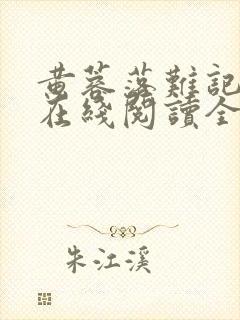 黄蓉落難記
在綫閱讀全
朱江溪